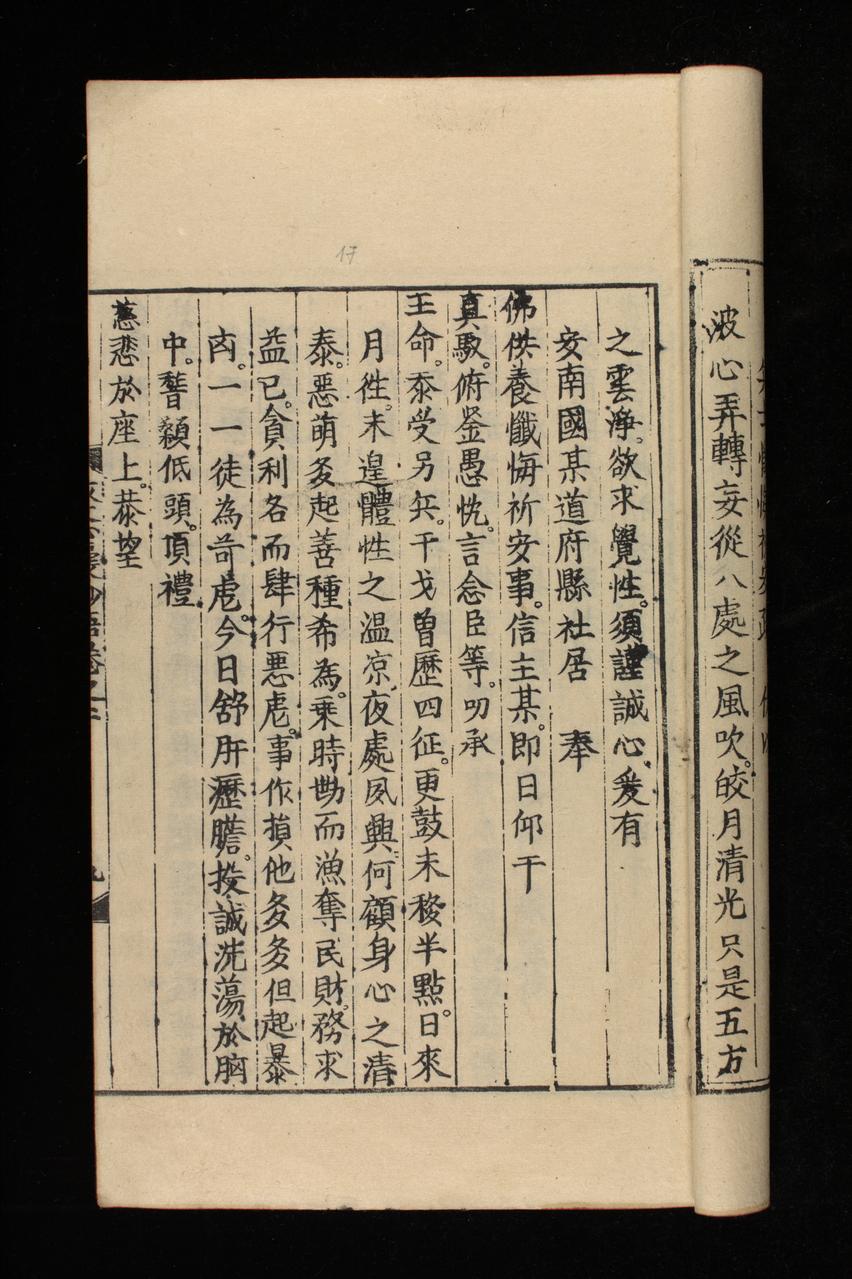 波心弄轉妄從八處之風吹。皎月清光只是五方
之雲淨。欲求覺性。須謹誠心。爰有
安南國某道府縣社居　奉
佛供養懺悔祈安事。信主某。即日仰干
真馭。俯鉴愚忱。言念臣等。叨承
王命。忝受另兵。干戈曾歷四征。更鼓未移半點。日來
月徃。未遑體性之温凉。夜處夙興。何顧身心之清
泰。惡萌多起善種希為。乘時勘而漁奪民財。務求
益已。貪利名而肆行惡虐。事作損他多多但起暴
㐫。一一徒為苛虐。今日舒肝瀝膽。投誠洗蕩於胸
中。誓顙低頭。頂禮
慈悲於座上。恭望
17